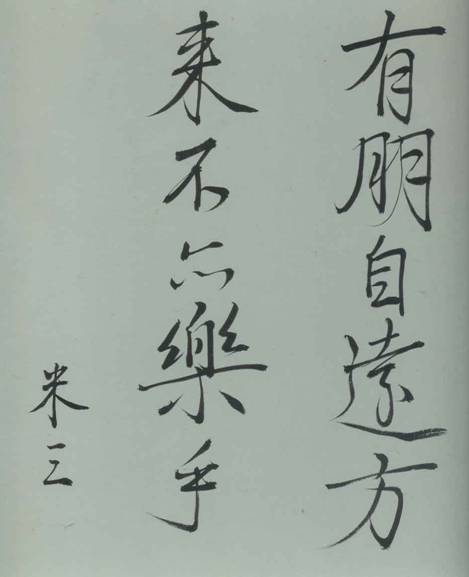 有朋自遠方
来不亦樂乎
米三